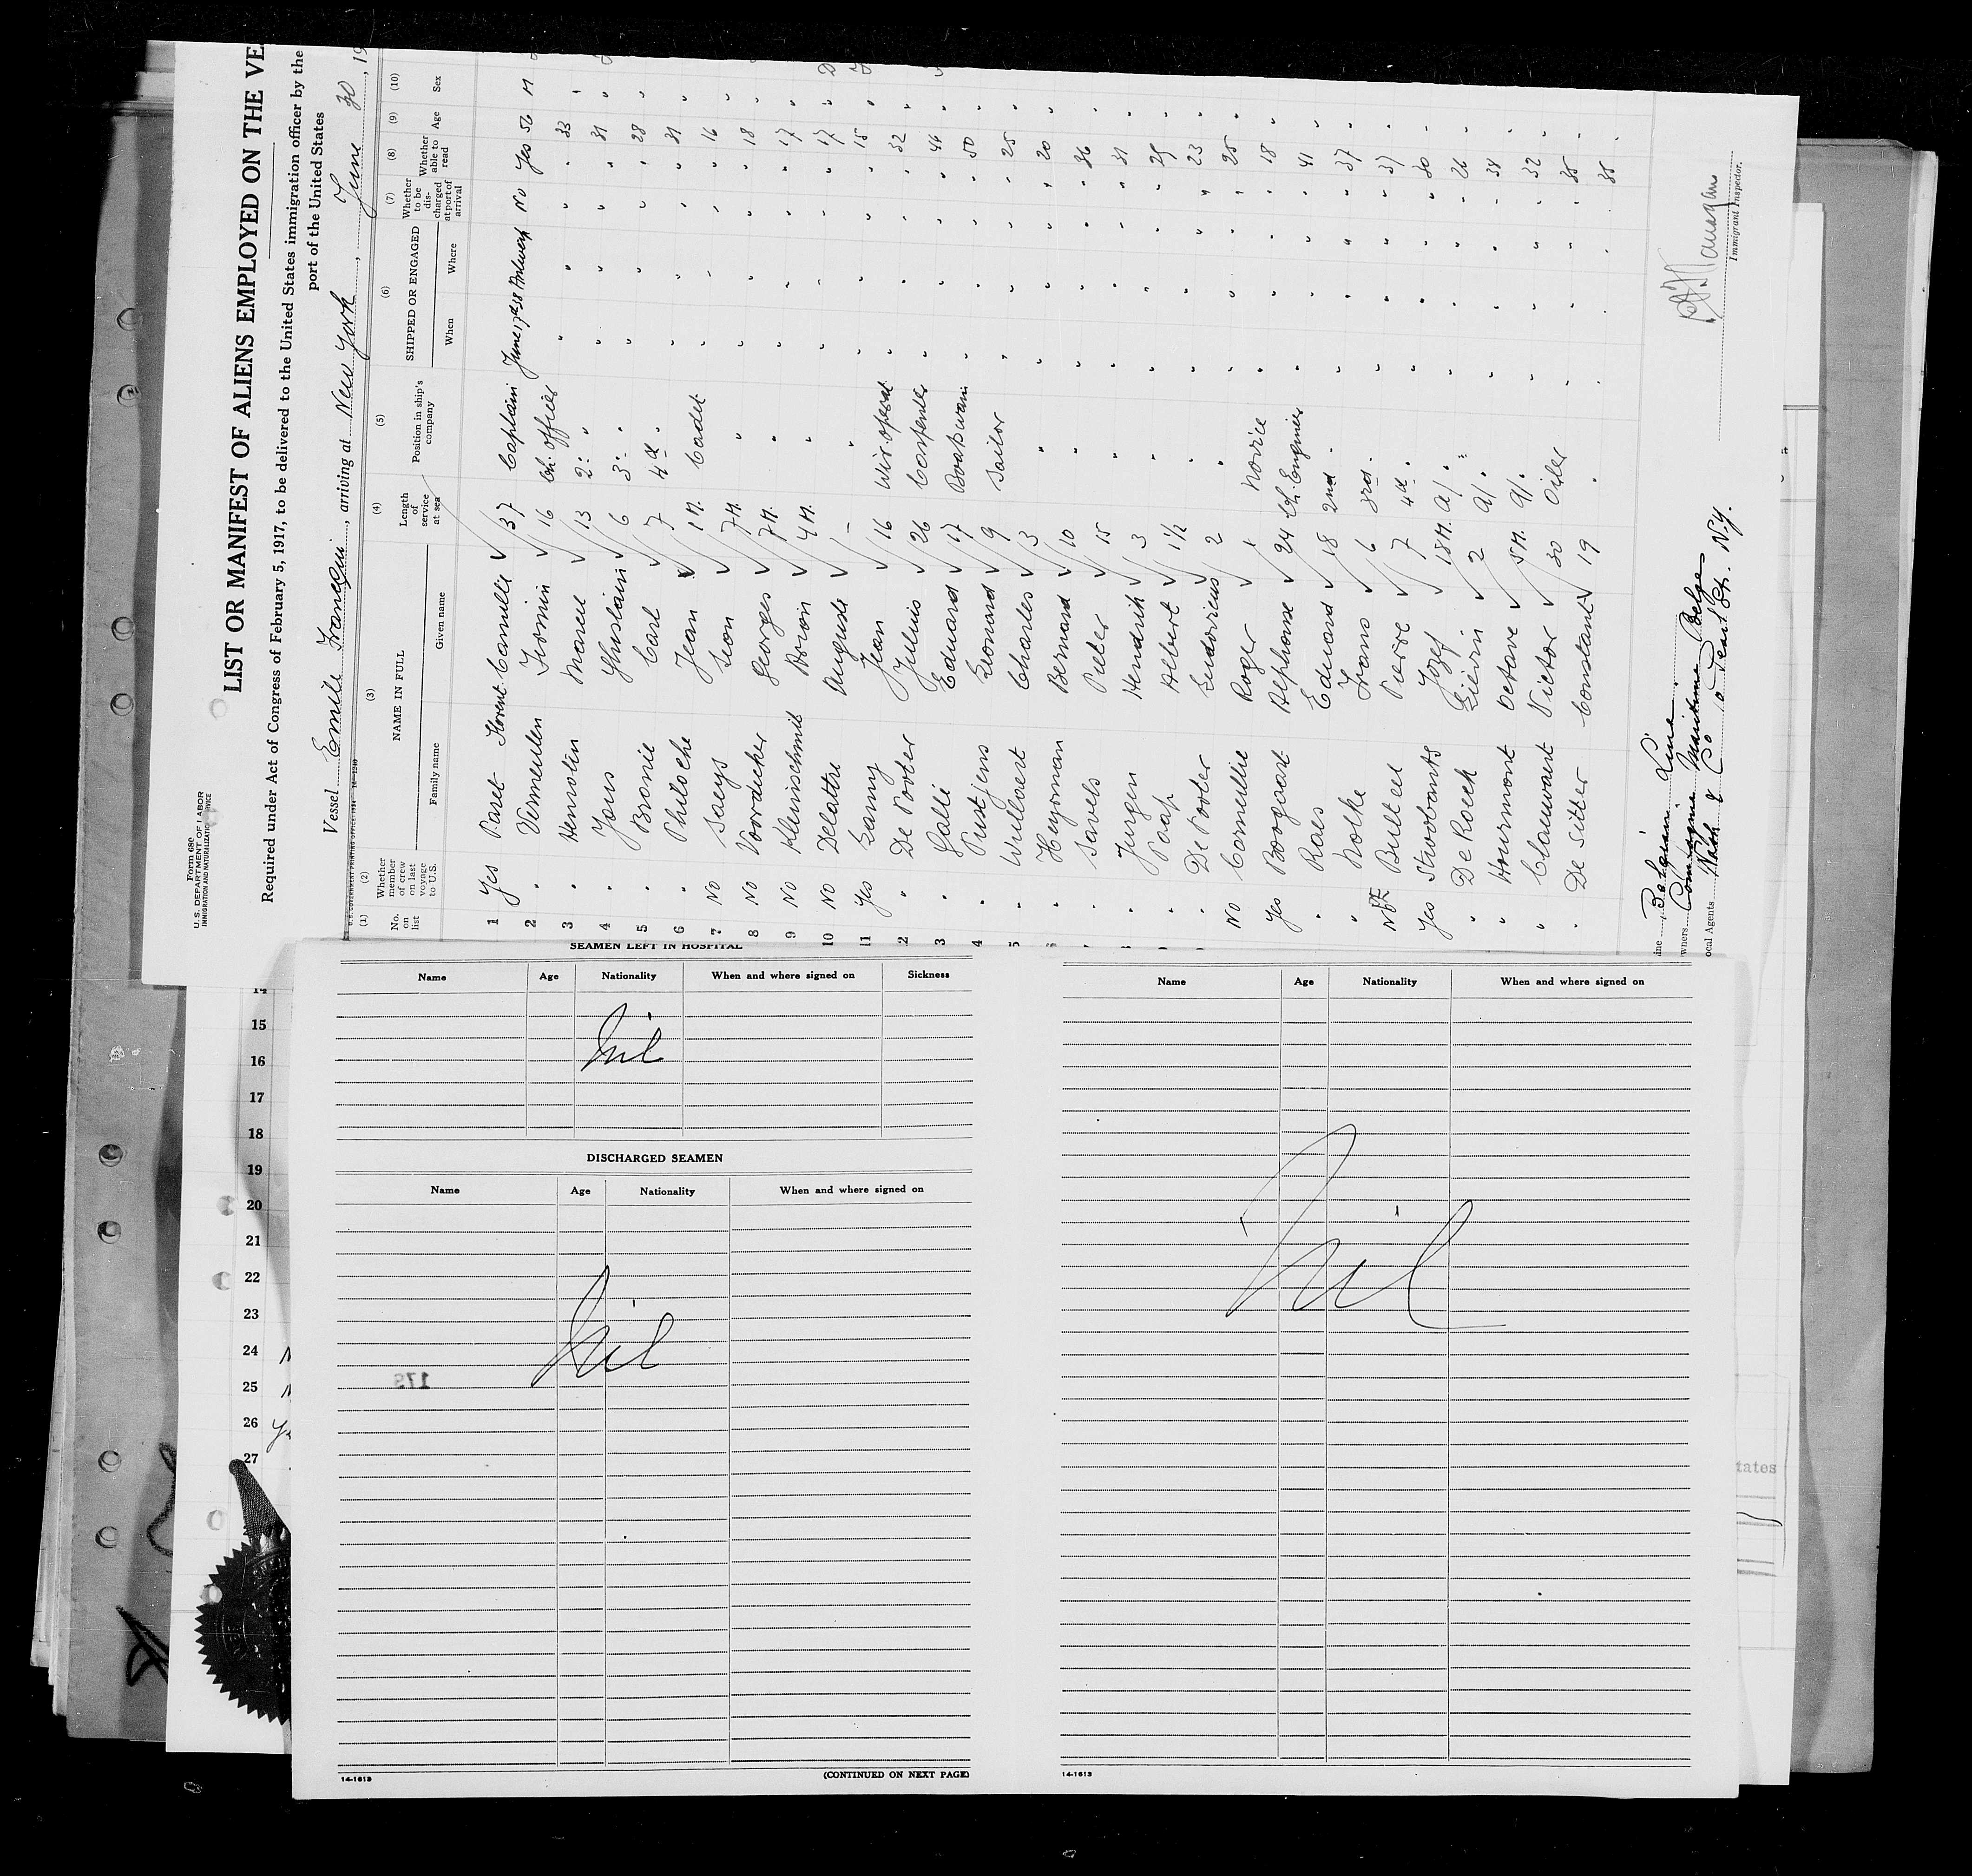 Form 680
U.S. DEPARTMENT OF LABOR
IMMIGRATION AND NATURALIZATION SERVICE
LIST OR MANIFEST OF ALIENS EMPLOYED ON THE VE
Required under Act of Congress of February 5, 1917, to be delivered to the United States immigration officer by the
port of the United States
Vessel Emile Francqui, arriving at New York, June 30, 19
(1) (2) (3) (4) (5) (6) (7) (8) (9) (10)
No. on list Whether member of crew on last voyage to U.S. NAME IN FULL Family name Given name Length of service at sea Position in ship's company SHIPPED OR ENGAGED When Where Whether to be discharged at port of arrival Whether able to read Age Sex
1 Yes Paret Florent Camille 37 Captain June 17 38 Antwerp No Yes 56 M
2 " Vermeulen Firmin 16 Ch. officer " " " " 33 "
3 " Hemrotin Marcel 13 2" " " " " " 31 "
4 " Yous Ghislain 6 3" " " " " " 28 "
5 " Bronie Carl 7 4th " " " " " 31 "
6 " Philoche Jean 1 M. Cadet " " " " 16 "
7 No Saeys Leon 7 M. " " " " " 18 "
8 No Voordecker Georges 7 M. " " " " " 17 "
9 No Kleinschmit Orion 4 M. " " " " " 17 "
10 No Delattre Auguste - " " " " " 15 "
11 Yes Lanny Jean 16 Wir. operat. " " " " 32 "
2 " De Pooter Julius 26 Carpenter " " " " 44 "
3 " Galli Eduard 17 Boatswain " " " " 50 "
4 " Pustjens Leonard 9 Sailor " " " " 25 "
5 " Wullaert Charles 3 " " " " " 20 "
6 " Heyrman Bernard 10 " " " " " 36 "
" Savels Pieter 15 " " " " " 31 "
" Jurgen Hendrik 3 " " " " " 29 "
" Poap Albert 1½ " " " " " 23 "
" De Pooter Ludovicus 2 " " " " " 25 "
No Corneillie Roger - Novice " " " " 18 "
Yes Boogaart Alphonse 24 Ch. Engineer " " " " 41 "
" Raes Eduard 18 2nd " " " " " 37 "
" Nolke Frans 6 3rd " " " " " 37 "
Not Bulteel Pierre 7 4th " " " " " 30 "
Yes Stroobants Jozef 18 M. a/. " " " " 26 "
" De Roeck Lievin 2 a/. " " " " 34 "
" Hourmont Octave 5 M. a/. " " " " 32 "
" Clauwaert Victor 30 Oiler " " " " 35 "
" De Sitter Constant 19 " " " " " 35 "
Line Belgian Line
Owners Compagnie Maritime Belge
Local Agents & Co 10 Pearl Str. N.Y.
Immigrant Inspector.
14
15
16
17
18
19
20
21
22
23
24
25
26
27
SEAMEN LEFT IN HOSPITAL
Name Age Nationality When and where signed on Sickness
Nil
DISCHARGED SEAMEN
Name Age Nationality When and where signed on
Nil
14-1613
(CONTINUED ON NEXT PAGE)
Name Age Nationality When and where signed on
Nil
14-1613
tates